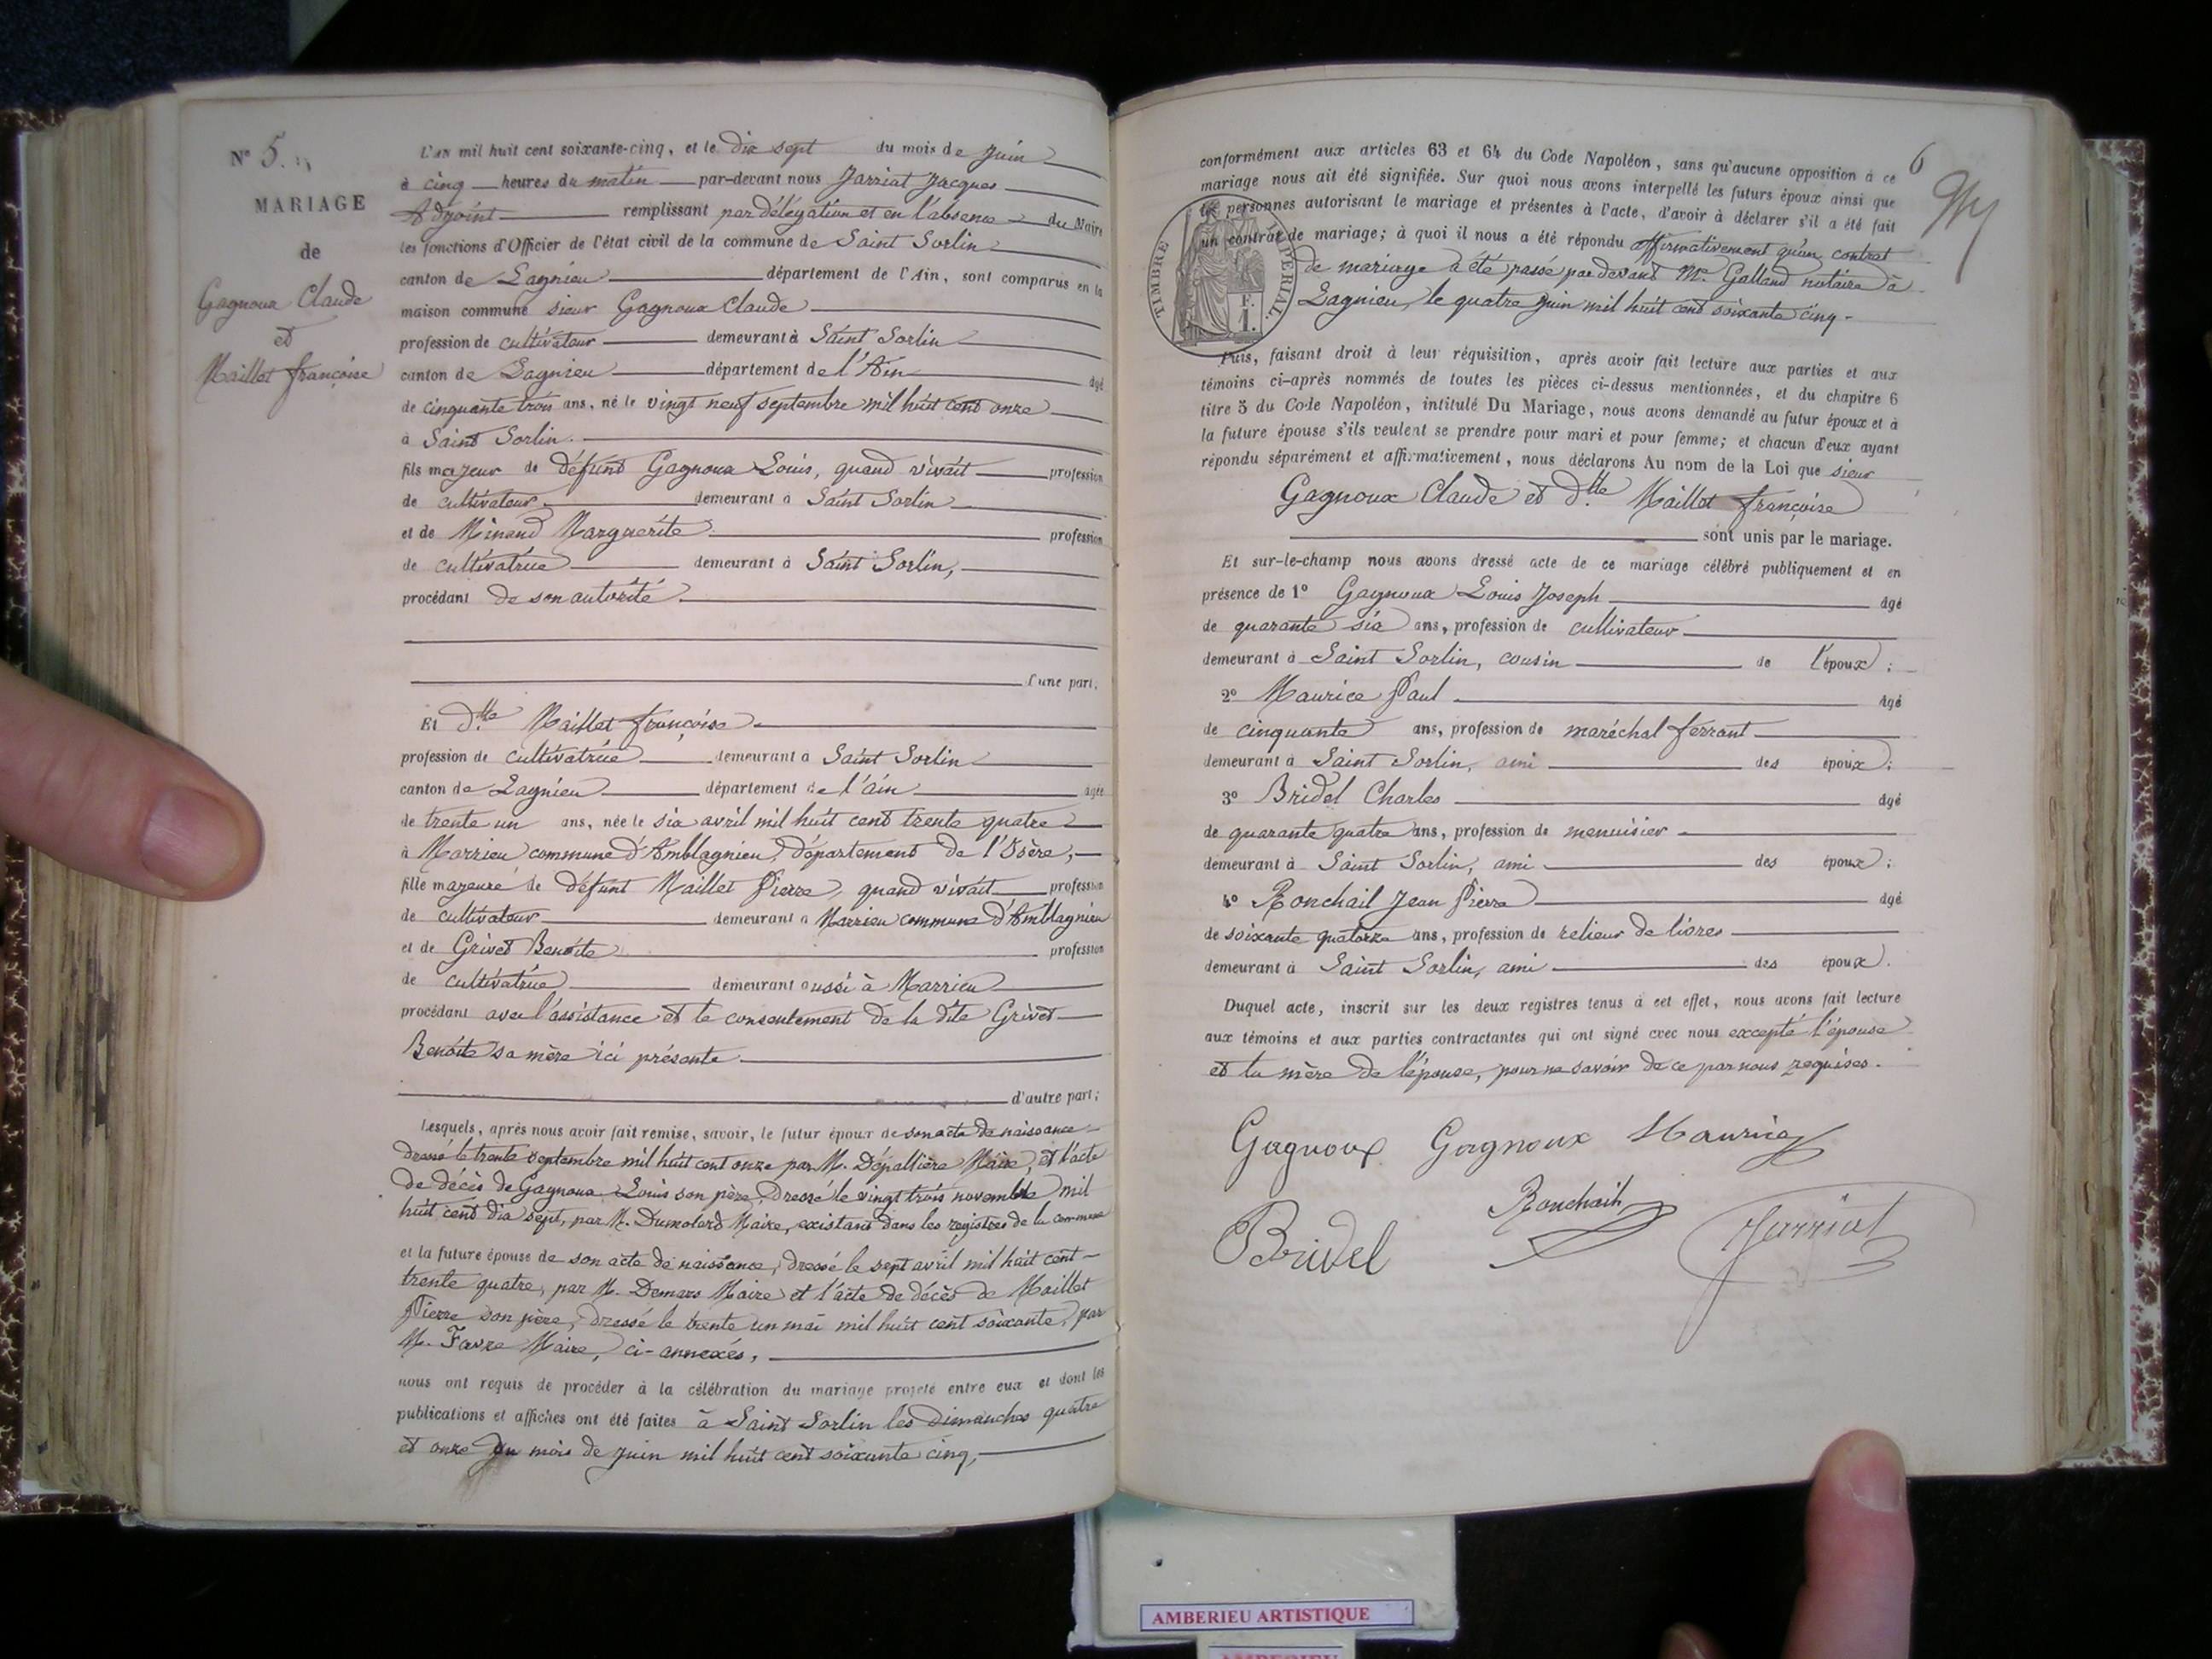 N° 5.
MARIAGE
de
Gagnoux Claude
et
Maillet françoise
L'an mil huit cent soixante-cinq, et le dix sept du mois de juin
à cinq heures du matin par-devant nous Jarriat Jacques
Adjoint remplissant par délégation et en l'absence du Maire
les fonctions d'Officier de l'état civil de la commune de Saint Sorlin
canton de Lagnieu département de l'Ain, sont comparus en la
maison commune sieur Gagnoux Claude
profession de cultivateur demeurant à Saint Sorlin
canton de Lagnieu département de l'Ain âgé
de cinquante trois ans, né le vingt neuf septembre mil huit cent onze
à Saint Sorlin.
fils majeur de défunt Gagnoux Louis, quand vivait profession
de cultivateur demeurant à Saint Sorlin
et de Minand Marguerite profession
de cultivatrice demeurant à Saint Sorlin,
procédant de son autorité
d'une part,
Et dlle Maillet françoise
profession de cultivatrice demeurant à Saint Sorlin
canton de Lagnieu département de l'ain âgée
de trente un ans, née le six avril mil huit cent trente quatre
à Marrieu commune d'Amblagnieu, département de l'Isère,
fille majeure de défunt Maillet Pierre, quand vivait profession
de cultivateur demeurant à Marrieu commune d'Amblagnieu
et de Grivet Benoite profession
de cultivatrice demeurant aussi à Marrieu
procédant avec l'assistance et le consentement de la dite Grivet
Benoite sa mère ici présente
d'autre part;
Lesquels, après nous avoir fait remise, savoir, le futur époux de son acte de naissance
dressé le trente septembre mil huit cent onze par M. Dépallière Maire, et l'acte
de décès de Gagnoux Louis son père, dressé le vingt trois novembre mil
huit cent dix sept, par M. Dumolard Maire, existant dans les registres de la commune
et la future épouse de son acte de naissance, dressé le sept avril mil huit cent
trente quatre, par M. Demars Maire et l'acte de décès de Maillet
Pierre son père, dressé le trente un mai mil huit cent soixante, par
M. Favre Maire, ci-annexés,
nous ont requis de procéder à la célébration du mariage projeté entre eux et dont les
publications et affiches ont été faites à Saint Sorlin les dimanches quatre
et onze du mois de juin mil huit cent soixante cinq,
6
conformément aux articles 63 et 64 du Code Napoléon, sans qu'aucune opposition à ce
mariage nous ait été signifiée. Sur quoi nous avons interpellé les futurs époux ainsi que
les personnes autorisant le mariage et présentes à l'acte, d'avoir à déclarer s'il a été fait
un contrat de mariage; à quoi il nous a été répondu affirmativement qu'un contrat
de mariage a été passé par devant Me. Galland notaire à
Lagnieu, le quatre juin mil huit cent soixante cinq.
TIMBRE IMPERIAL.
F.
1.
Puis, faisant droit à leur réquisition, après avoir fait lecture aux parties et aux
témoins ci-après nommés de toutes les pièces ci-dessus mentionnées, et du chapitre 6
titre 5 du Code Napoléon, intitulé Du Mariage, nous avons demandé au futur époux et à
la future épouse s'ils veulent se prendre pour mari et pour femme; et chacun d'eux ayant
répondu séparément et affirmativement, nous déclarons Au nom de la Loi que sieur
Gagnoux Claude et dlle Maillet françoise
sont unis par le mariage.
Et sur-le-champ nous avons dressé acte de ce mariage célébré publiquement et en
présence de 1° Gagnoux Louis Joseph âgé
de quarante six ans, profession de cultivateur
demeurant à Saint Sorlin, cousin de l'époux;
2° Maurice Paul âgé
de cinquante ans, profession de maréchal ferrant
demeurant à Saint Sorlin, ami des époux;
3° Bridel Charles âgé
de quarante quatre ans, profession de menuisier
demeurant à Saint Sorlin, ami des époux;
4° Ronchail Jean Pierre âgé
de soixante quatorze ans, profession de relieur de livres
demeurant à Saint Sorlin, ami des époux.
Duquel acte, inscrit sur les deux registres tenus à cet effet, nous avons fait lecture
aux témoins et aux parties contractantes qui ont signé avec nous excepté l'épouse
et la mère de l'épouse, pour ne savoir de ce par nous requises.
Gagnoux Gagnoux Maurice
Ronchail
Bridel Jarriat
AMBERIEU ARTISTIQUE
AMBERIEU